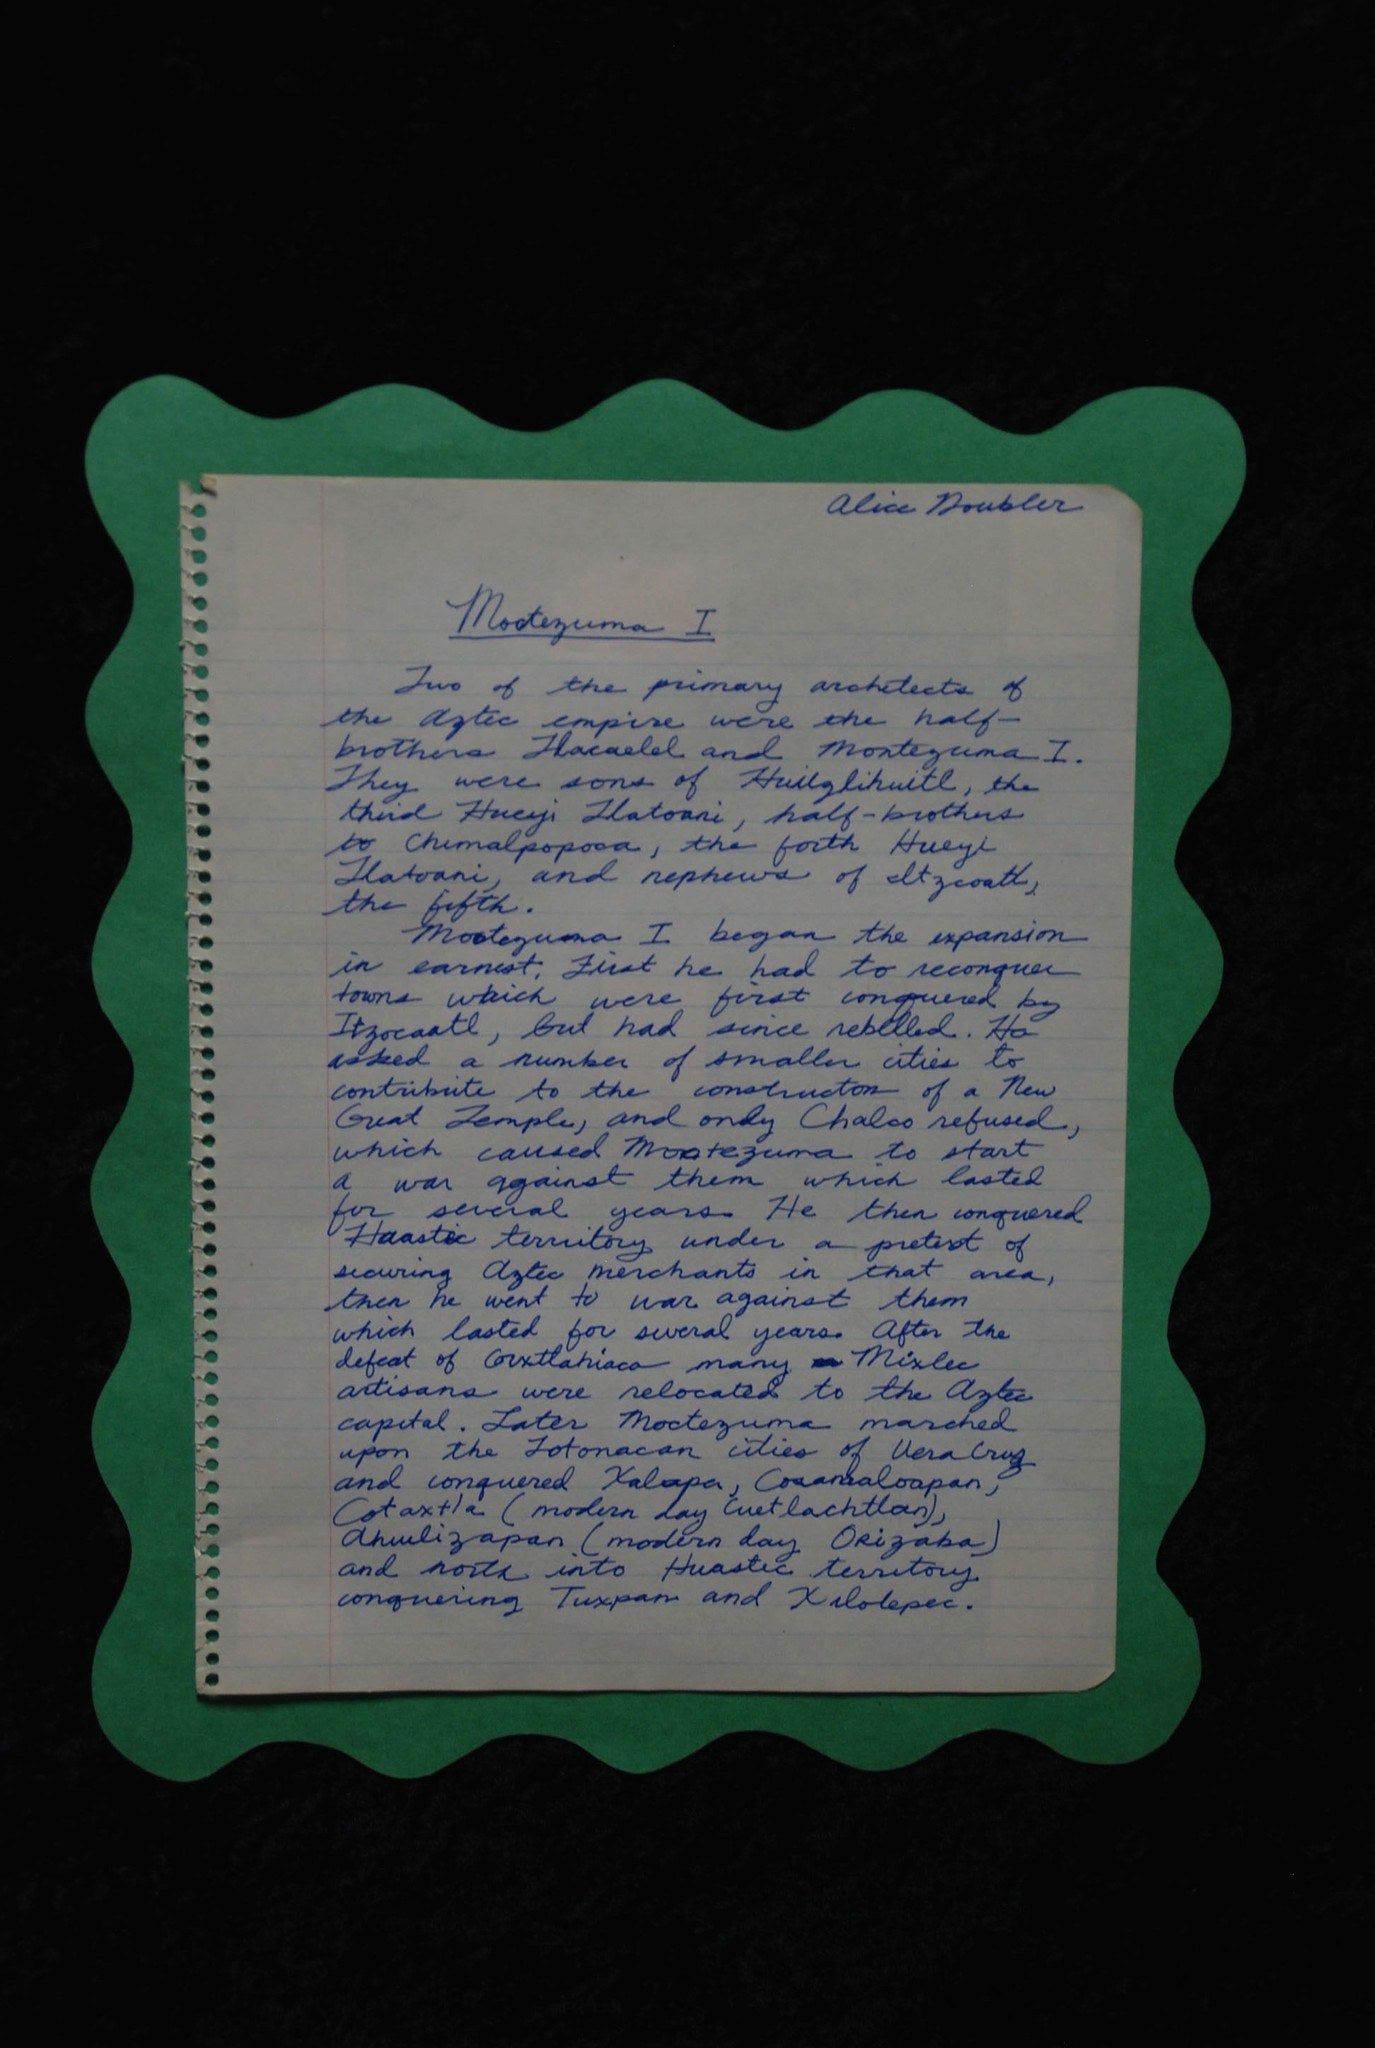 Alice Doubler
Moctezuma I
Two of the primary architects of
the Aztec empire were the half-
brothers Tlacaelel and Montezuma I.
They were sons of Huitzlihuitl, the
third Hueyi Tlatoani, half-brothers
to Chimalpopoca, the forth Hueyi
Tlatoani, and nephews of Itzcoatl,
the fifth.
Moctezuma I began the expansion
in earnest. First he had to reconquer
towns which were first conquered by
Itzocaatl, but had since rebelled. He
asked a number of smaller cities to
contribute to the constructon of a New
Great Temple, and only Chalco refused,
which caused Moctezuma to start
a war against them which lasted
for several years. He then conquered
Haastec territory under a pretext of
securing Aztec merchants in that area,
then he went to war against them
which lasted for several years. After the
defeat of Coixtlahiaca many Mixlec
artisans were relocated to the Aztec
capital. Later Moctezuma marched
upon the Totonacan cities of Vera Cruz
and conquered Xalapa, Cosamaloapan,
Cotaxtla (modern day Cuetlachtlan),
Ahuilizapan (modern day Orizaba)
and north into Huastec territory
conquering Tuxpan and Xilotepec.